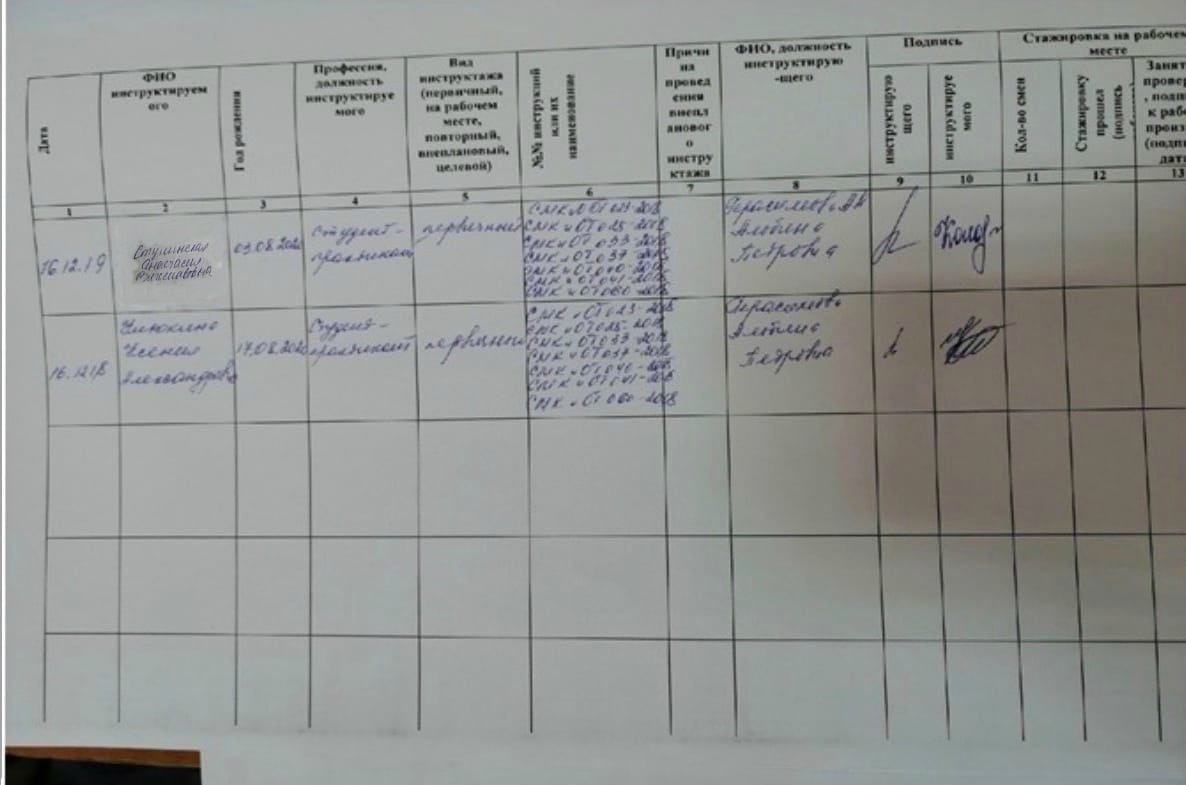 Дата
ФИО
инструктируем
ого
Год рождения
Профессия,
должность
инструктируе
мого
Вид
инструктажа
(первичный,
на рабочем
месте,
повторный,
внеплановый,
целевой)
№№ инструкций
или их
наименование
Причи
на
провед
ения
внепл
анового
о
инстру
ктажа
ФИО, должность
инструктирую
-щего
Подпись
инструктирую
щего
инструктируе
мого
Стажировка на рабочем
месте
Кол-во смен
Стажировку
прошел
(подпись
1 2 3 4 5 6 7 8 9 10 11 12 13
16.12.19
Анастасия
Вячеславовна
03.08.2020
Студент-
практикант
первичный
СМК и ОТ 023-2018
СМК и ОТ 025-2018
СМК и ОТ 033-2018
СМК и ОТ 037-2018
СМК и ОТ 040-2018
СМК и ОТ 041-2018
СМК и ОТ 060-2018
Альбина
Петровна
Ксения
Александровна
17.08.2020
Студент-
практикант
первичный
СМК и ОТ 023-2018
СМК и ОТ 025-2018
СМК и ОТ 033-2018
СМК и ОТ 037-2018
СМК и ОТ 040-2018
СМК и ОТ 041-2018
СМК и ОТ 060-2018
Герасимова
Альбина
Петровна